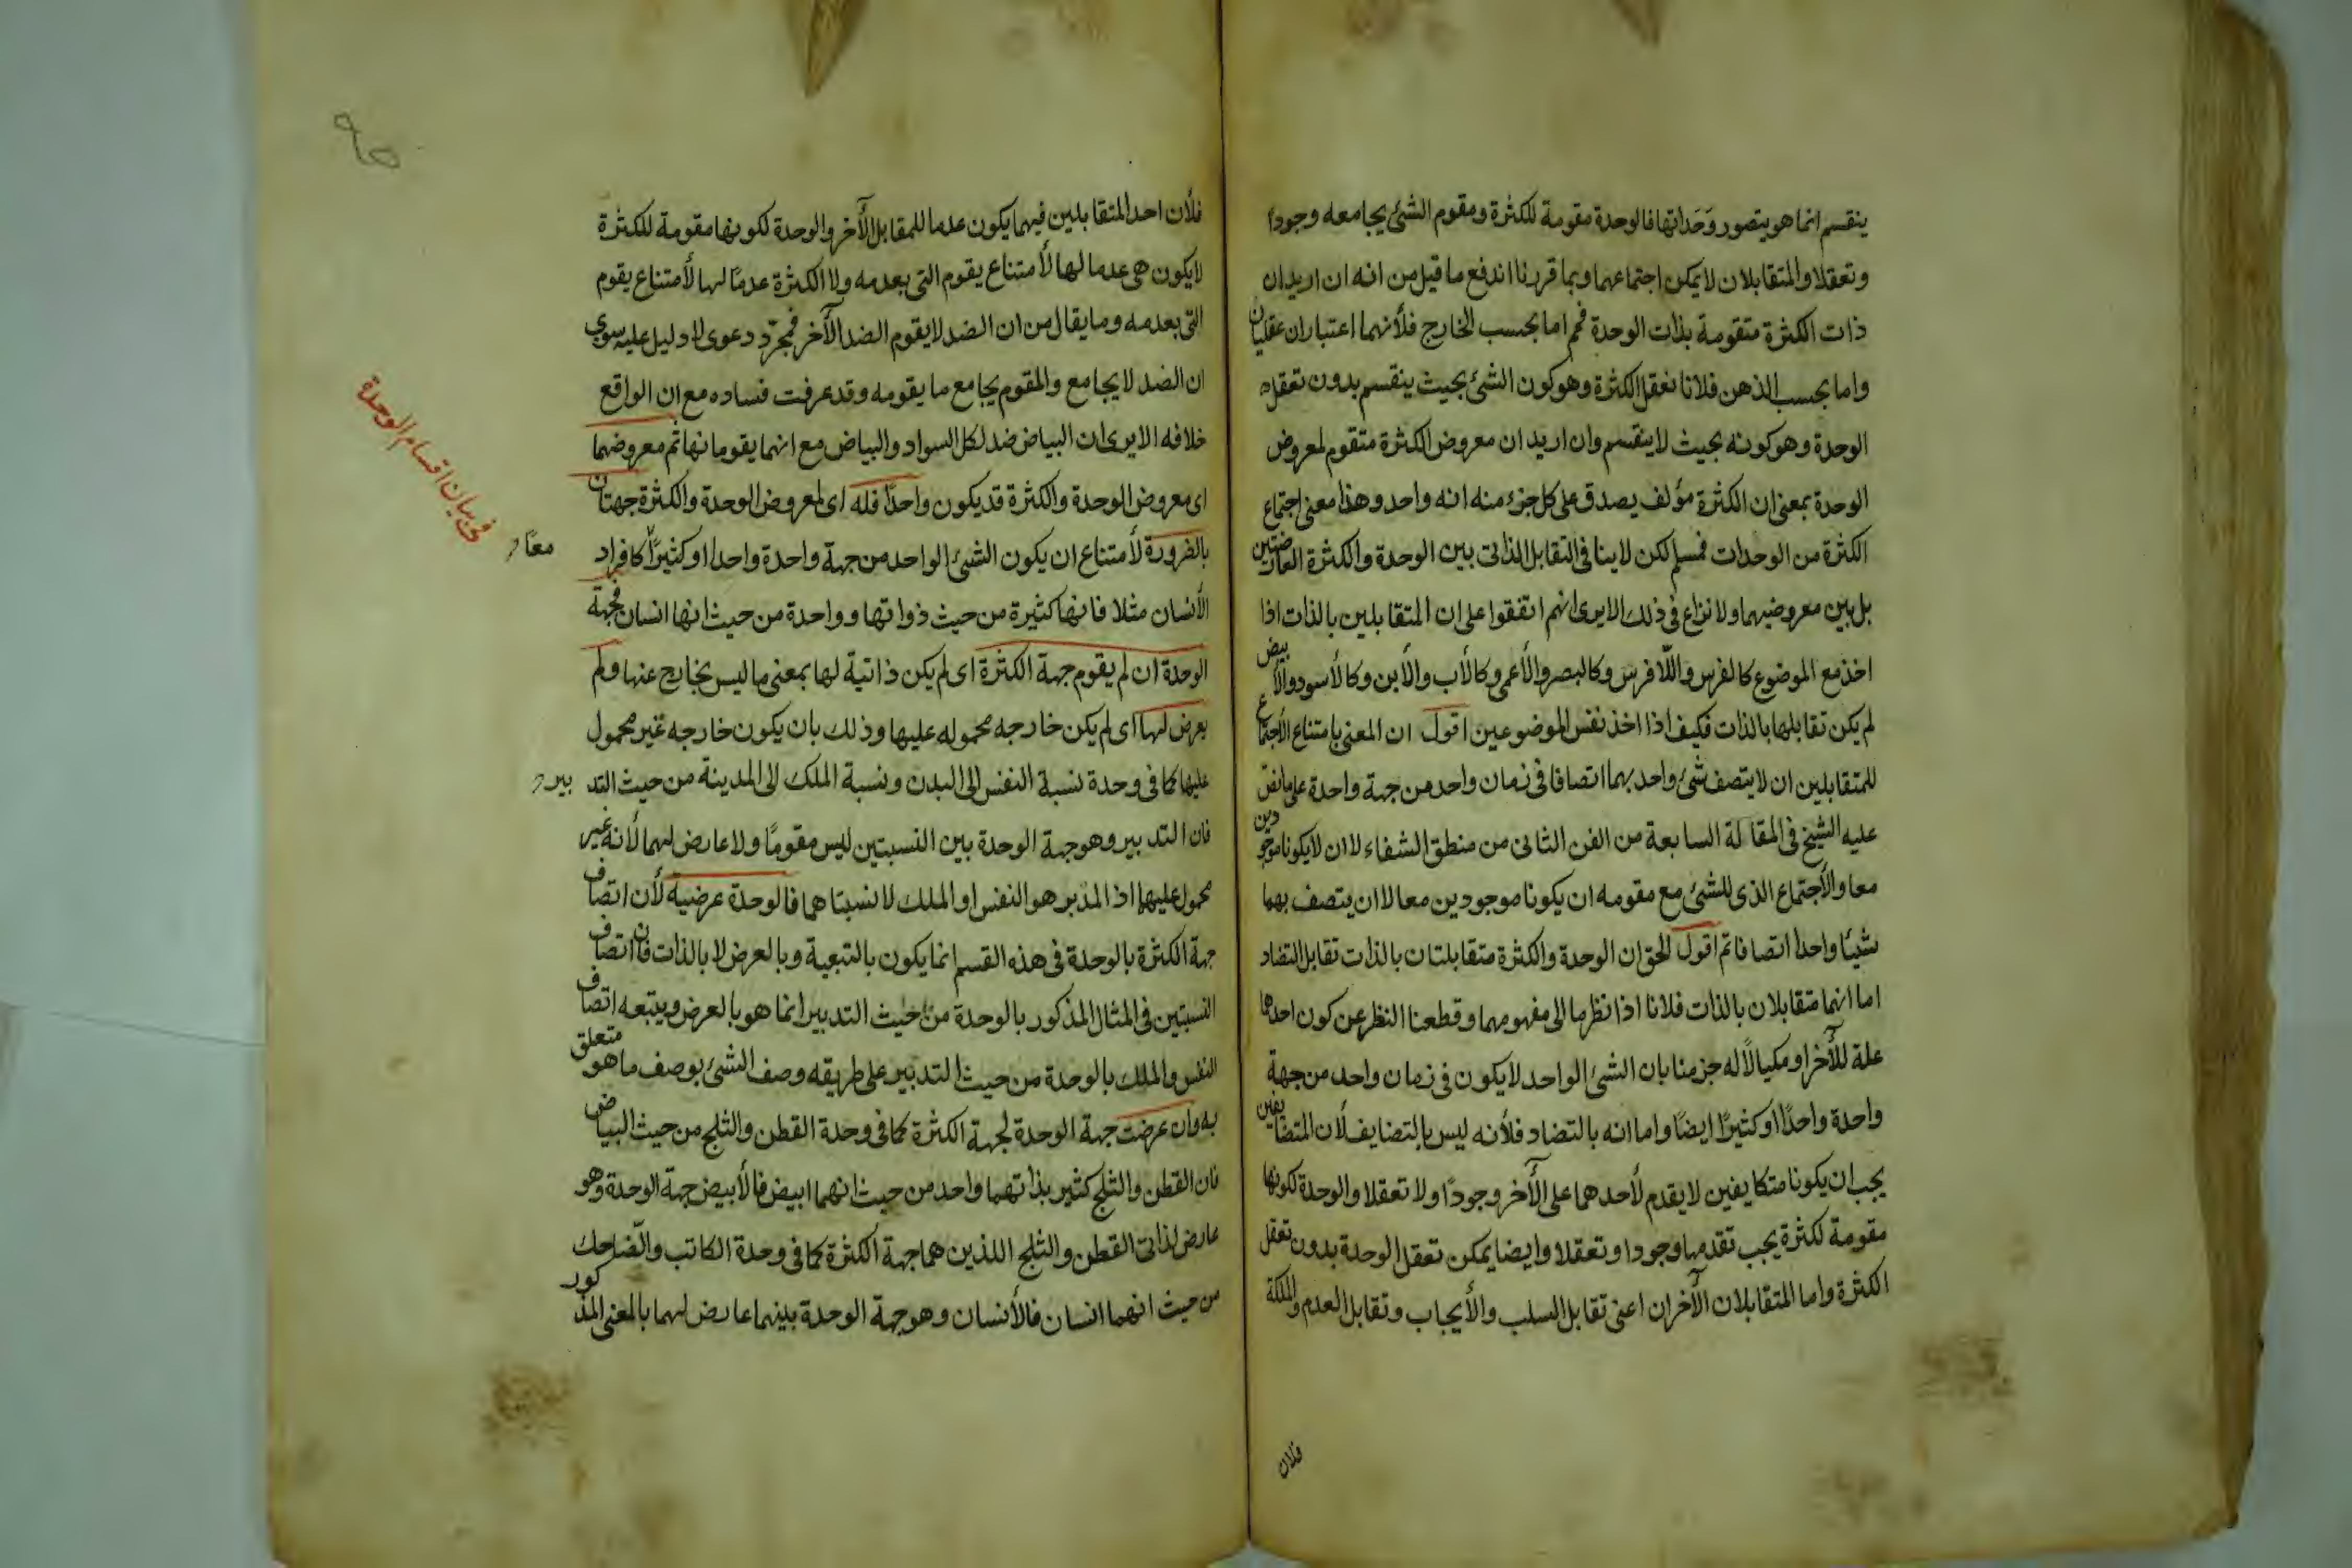 ينقسم انما هو يتصور وَحَداتها فالوحدة مقومة للكثرة ومقوم الشئ يجامعه وجودا
وتعقلا والمتقابلان لا يمكن اجتماعهما وبما قررنا اندفع ما قيل من انه ان اريد ان
ذات الكثرة متقومة بذات الوحدة فمم اما بحسب الخارج فلأنهما اعتباران عقليان
واما بحسب الذهن فلانا نعقل الكثرة وهو كون الشئ بحيث ينقسم بدون تعقل
الوحدة وهو كونه بحيث لا ينقسم وان اريد ان معروض الكثرة متقوم لمعروض
الوحدة بمعنى ان الكثرة مؤلف يصدق على كل جزء منه انه واحد وهذا معنى اجتماع
الكثرة من الوحدات فمسلم لكن لا ينافى التقابل الذاتى بين الوحدة والكثرة العارضتين
بل بين معروضيهما ولا نزاع فى ذلك الا يرى انهم اتفقوا على ان المتقابلين بالذات اذا
اخذ مع الموضوع كالفرس واللّا فرس وكالبصر والأعمى وكالأب والأبن وكالأسود والأبيض
لم يكن تقابلها بالذات فكيف اذا اخذ نفس الموضوعين اقول ان المعنى بامتناع الأجتماع
للمتقابلين ان لا يتصف شئ واحد بهما اتصافا فى زمان واحد من جهة واحدة على ما نص
عليه الشيخ فى المقالة السابعة من الفن الثانى من منطق الشفاء لا ان لا يكونا موجودين
معا والأجتماع الذى للشئ مع مقومه ان يكونا موجودين معا لا ان يتصف بهما
شيئا واحدا اتصافا ثم اقول الحق ان الوحدة والكثرة متقابلتان بالذات تقابل التضاد
اما انهما متقابلان بالذات فلانا اذا نظرنا الى مفهومهما وقطعنا النظر عن كون احدهما
علة للأخر او مكيالًا له جزمنا بان الشئ الواحد لا يكون فى زمان واحد من جهة
واحدة واحدًا او كثيرًا ايضًا واما انه بالتضاد فلأنه ليس بالتضايف لأن المتضايفين
يجب ان يكونا متكايفين لا يقدم لأحدهما على الأخر وجودًا ولا تعقلا والوحدة لكونها
مقومة لكثرة يجب تقدمها وجودا وتعقلا وايضا يمكن تعقل الوحدة بدون تعقل
الكثرة واما المتقابلان الأخران اعنى تقابل السلب والأيجاب وتقابل العدم والملكة
فلان
فلأن احد المتقابلين فيهما يكون عدما للمقابل الأخر والوحدة لكونها مقومة للكثرة
لا يكون هى عدما لها لأمتناع يقوم التى بعدمه ولا الكثرة عدمًا لها لأمتناع يقوم
التى بعدمه وما يقال من ان الضد لا يقوم الضد الأخر فمجرّد دعوى لا دليل عليه سوى
ان الضد لا يجامع والمقوم يجامع ما يقومه وقد عرفت فساده مع ان الواقع
خلافه الا يرى ان البياض ضد لكل السواد والبياض مع انهما يقومانها ثم معروضهما
اى معروض الوحدة والكثرة قد يكون واحدًا فله اى لمعروض الوحدة والكثرة جهتان
بالضرورة لأمتناع ان يكون الشئ الواحد من جهة واحدة واحدا او كثيرًا كافراد
معًا
الأنسان مثلا فانها كثيرة من حيث ذواتها وواحدة من حيث انها انسان فجهة
الوحدة ان لم يقوم جهة الكثرة اى لم يكن ذاتية لها بمعنى ما ليس بخارج عنها ولم
يعرض لها اى لم يكن خارجه محموله عليها وذلك بان يكون خارجه غير محمول
عليها كما فى وحدة نسبة النفس الى البدن ونسبة الملك الى المدينة من حيث التدبير
فان التدبير وهو جهة الوحدة بين النسبتين ليس مقومًا ولا عارض لهما لأنه غير
محمول عليهما اذ المدبر هو النفس او الملك لا نسبتا هما فالوحدة عرضية لأن اتصاف
جهة الكثرة بالوحدة فى هذه القسم انما يكون بالتبعية وبالعرض لا بالذات فان اتصاف
النسبتين فى المثال المذكور بالوحدة من حيث التدبير انما هو بالعرض ويتبعه اتصاف
النفس والملك بالوحدة من حيث التدبير على طريقه وصف الشئ بوصف ما هو متعلق
به وان عرضت جهة الوحدة لجهة الكثرة كما فى وحدة القطن والثلج من حيث البياض
فان القطن والثلج كثير بذاتهما واحد من حيث انهما ابيض فالأبيض جهة الوحدة وهو
عارض لذاتى القطن والثلج اللذين هما جهة الكثرة كما فى وحدة الكاتب والضاحك
من حيث انهما انسان فالأنسان وهو جهة الوحدة بينهما عارض لهما بالمعنى المذكور
فى بيان اقسام الوحدة